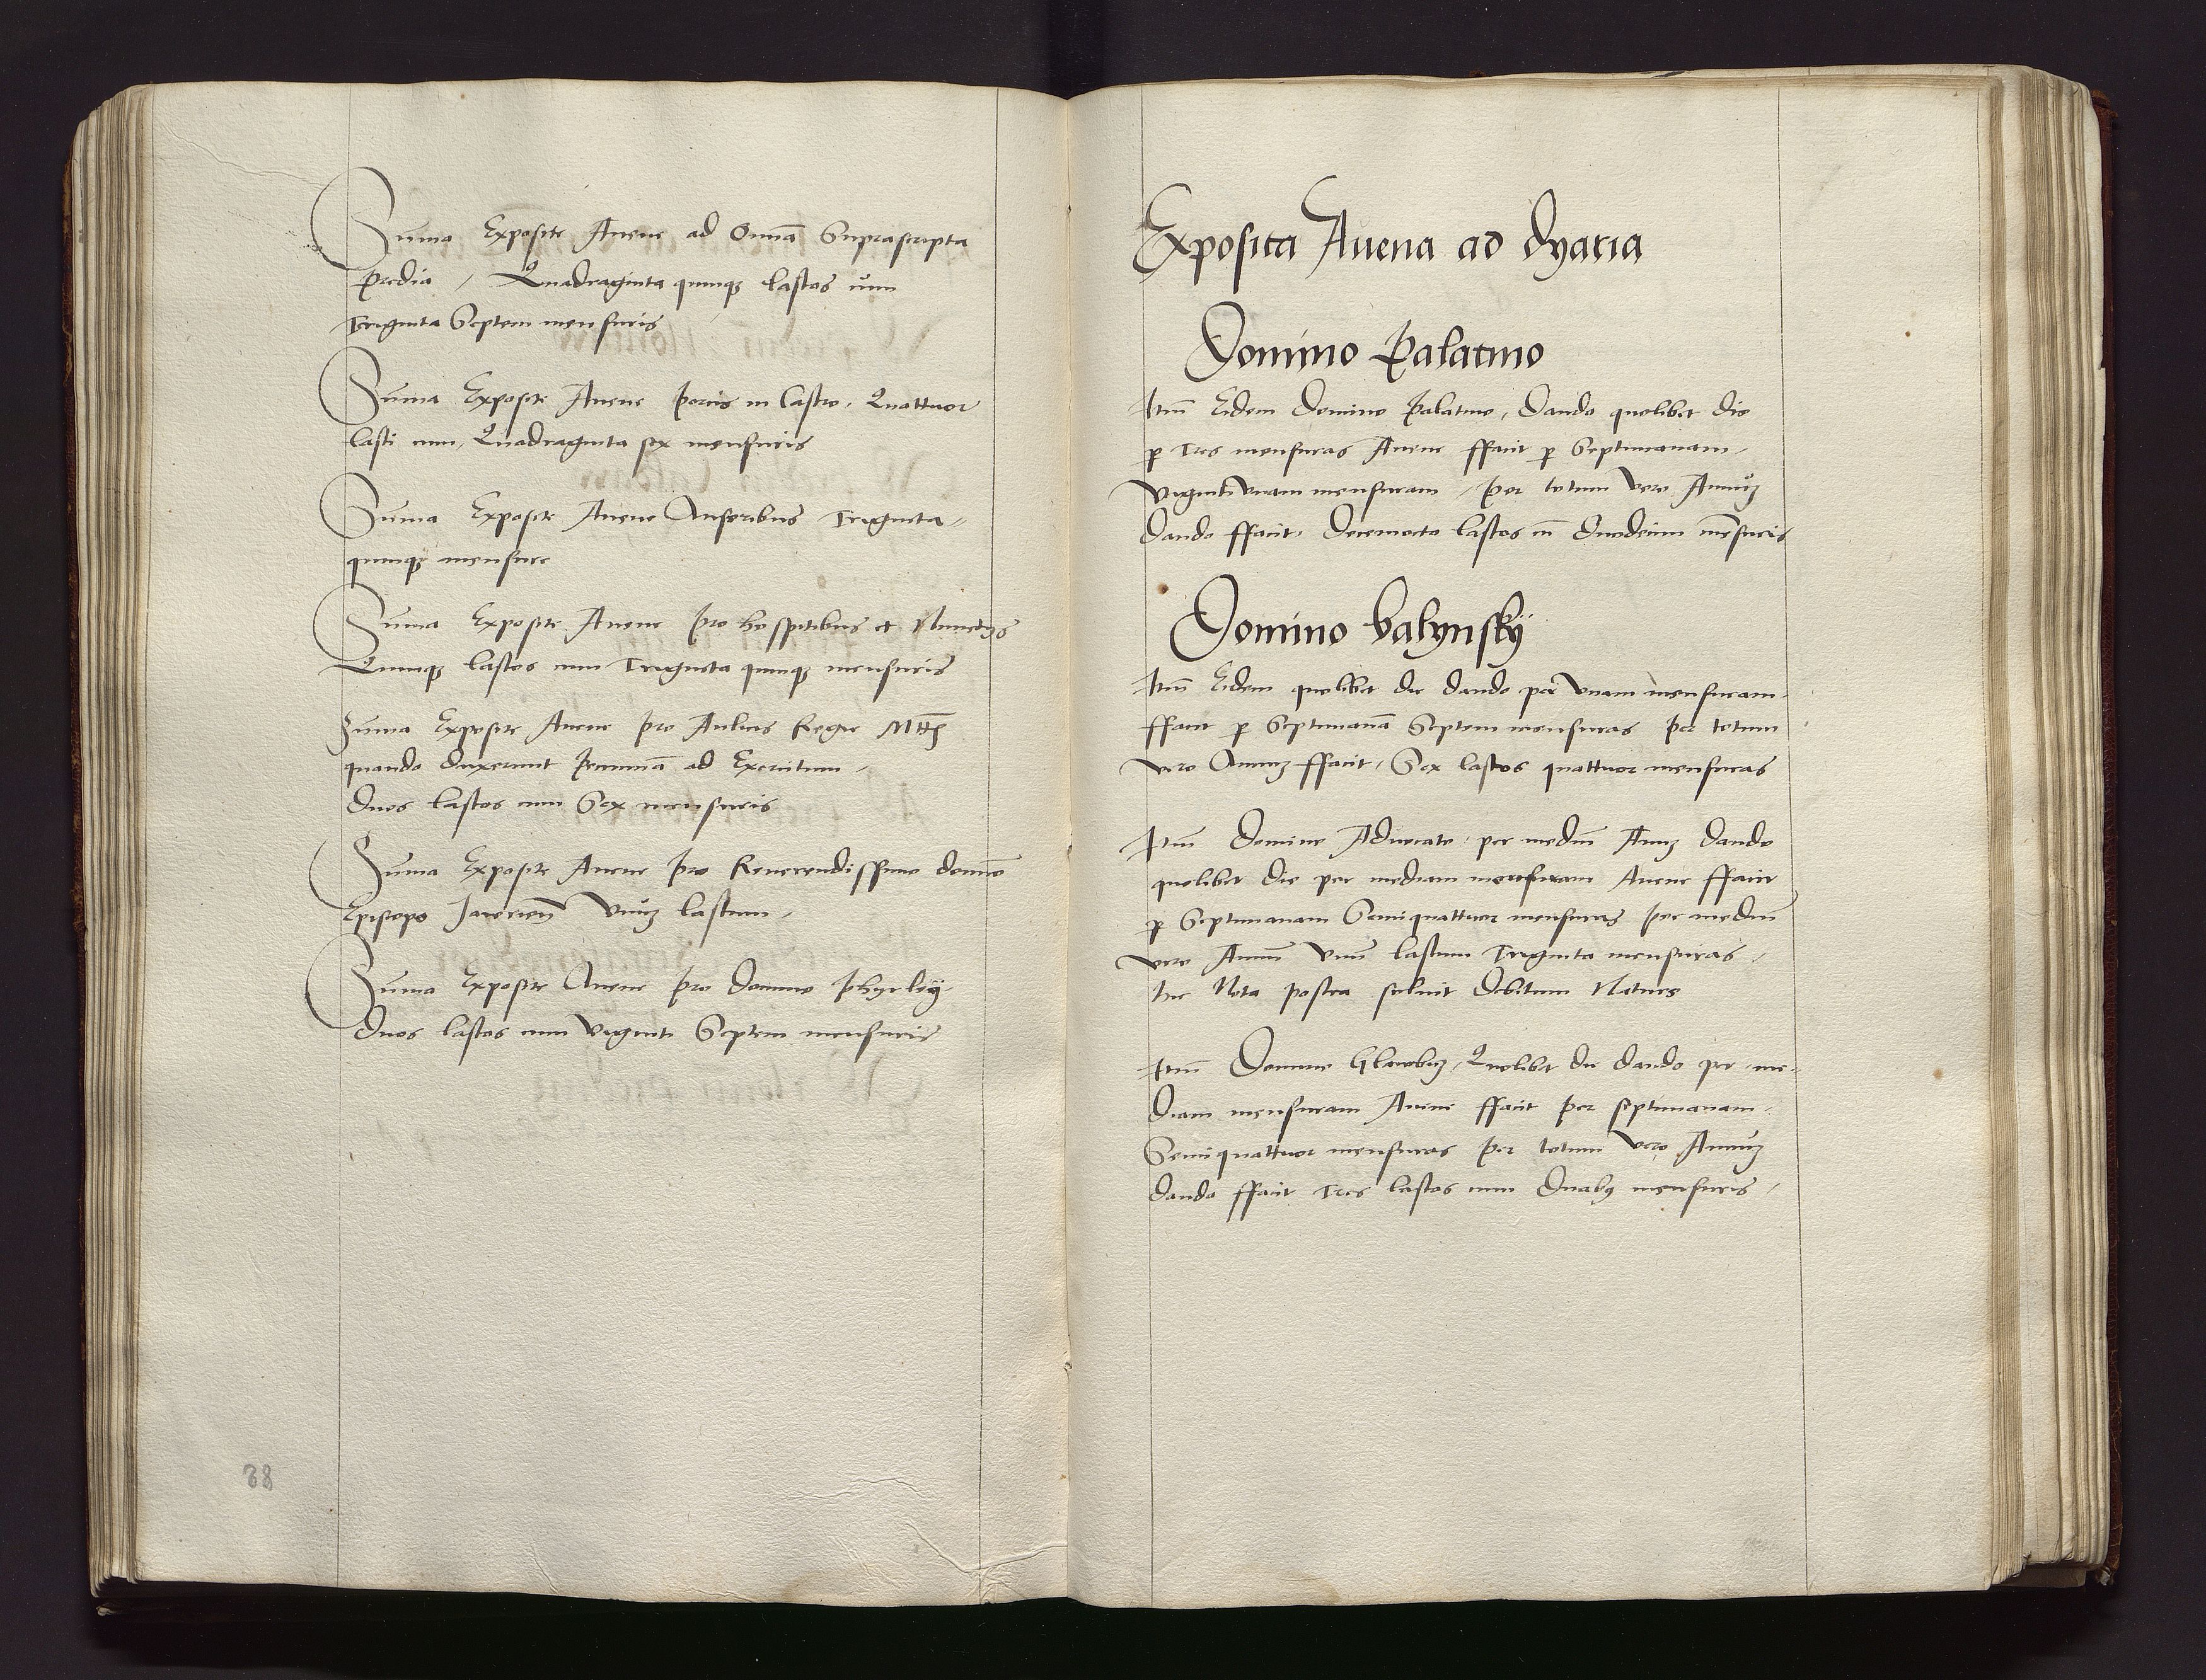 Suma Exposite Avene ad Omnia Suprascripta
predia / Quadraginta quinque lastos cum
Triginta Septem mensuris
Suma Exposite Avene porcis in Castro. Quattuor
lasti cum Quadraginta sex mensuris
Suma Exposite Avene Anseribus Triginta
quinque mensure
Suma Exposite Avene pro hospitibus et Nuncys
Quinque lastos cum Triginta quinque mensuris
Suma Exposite Avene pro Aulicis Regie Mttis
quando duxerunt pecuniã ad Exercitum
Duos lastos cum Sex mensuris
Suma Exposite Avene pro Reverendissimo domino
Episcopo Jaurien̄ Vnuz lastum
Suma Exposite Avene pro Domino Phyrleÿ
Duos lastos cum viginti Septem mensuris
38
Exposita Auena ad dyaria
Domino Palatino
Itm̄ Eidem Domino Palatino, Dando quolibet die
p Tres mensuras Avene ffacit p Septimanam
vigintivnam mensuram / per totum vero Annuz
Dando ffacit. Decemocto lastos cū Duodecim mēsuris
Domino balynskÿ
Itm̄ Eidem quolibet die dando per vnam mensuram
ffacit p Septimanā Septem mensuras per totum
vero Annuz ffacit, Sex lastos quattuor mensuras
Itm̄ Domino Advocato per mediū Annuz Dando
quolibet die per mediam mensuram Avene ffacit
p Septimanam Semiquattuor mensuras per mediū
vero Annū vnū lastum Triginta mensuras
hic Nota postea soluit Debitum Nature
Itm̄ Domino Glowbicz, Quolibet die dando per me-
diam mensuram Avene ffacit per septimanam
Semiquattuor mensuras per totum vero Annuz
dando ffacit Tres lastos cum Duabus mensuris